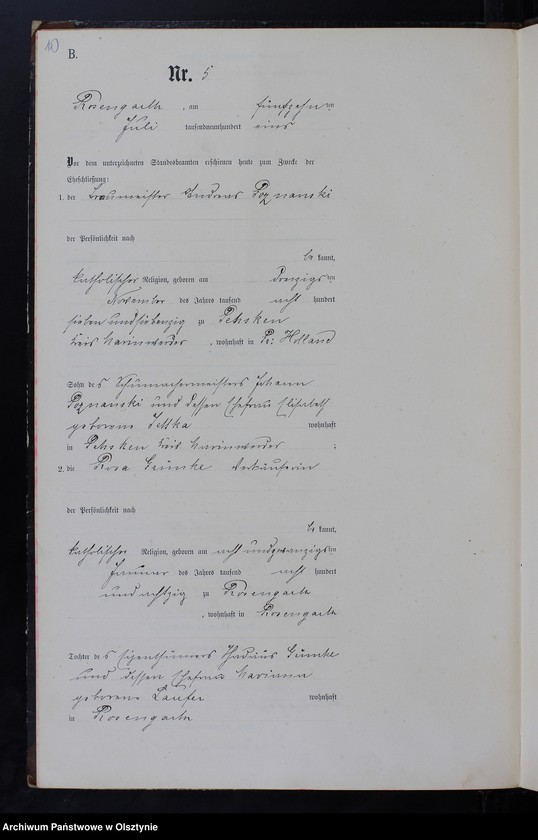 10
B.
Nr. 5
Rosengarth, am fünfzehn ten
Juli tausendneunhundert eins
Vor dem unterzeichneten Standesbeamten erschienen heute zum Zwecke der
Eheschließung:
1. der Braumeister Andreas Poznanski
der Persönlichkeit nach
be kannt,
katholischer Religion, geboren am dreizigs ten
November des Jahres tausend acht hundert
sieben und siebenzig zu Pehsken
Kreis Marienwerder, wohnhaft in Pr: Holland
Sohn des Schuhmachermeisters Johann
Poznanski und dessen Ehefrau Elisabeth
geborene wohnhaft
in Pehsken Kreis Marienwerder;
2. die Rosa Grunke Verkäuferin
der Persönlichkeit nach
be kannt,
katholischer Religion, geboren am acht und zwanzigs ten
Januar des Jahres tausend acht hundert
und achtzig zu Rosengarth
, wohnhaft in Rosengarth
Tochter des Eigenthümers Grunke
und dessen Ehefrau Marianna
geborene wohnhaft
in Rosengarth
Archiwum Państwowe w Olsztynie